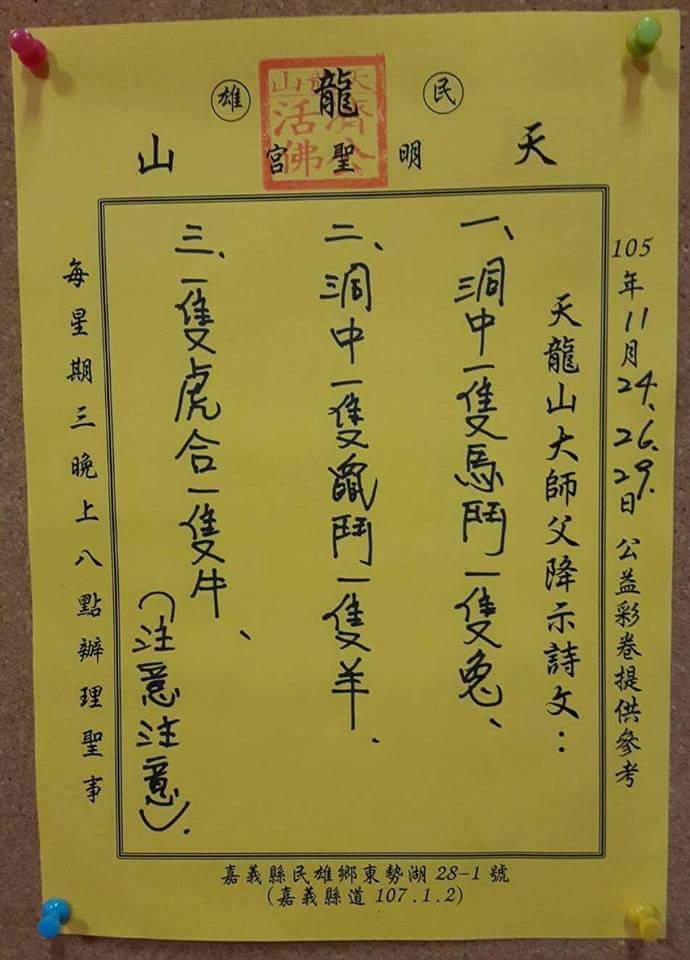 民雄
天龍山
明聖宮
天龍山
濟公
活佛
105年11月24.26.29.日 公益彩卷提供參考
天龍山大師父降示詩文：
一、洞中一隻馬鬥一隻兔、
二、洞中一隻鼠鬥一隻羊.
三、一隻虎合一隻牛、
(注意注意).
每星期三晚上八點辦理聖事
嘉義縣民雄鄉東勢湖28-1號
(嘉義縣道107.1.2)